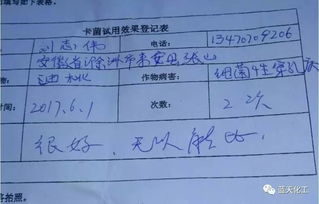 填写如下表格。
卡菌试用效果登记表
刘志伟 电话: 13470709206
安徽省滁州市来安县张山
油桃 作物病害: 细菌性穿孔病
时间: 2017.6.1 次数: 2次
很好,无以伦比
将拍照。
蓝天化工